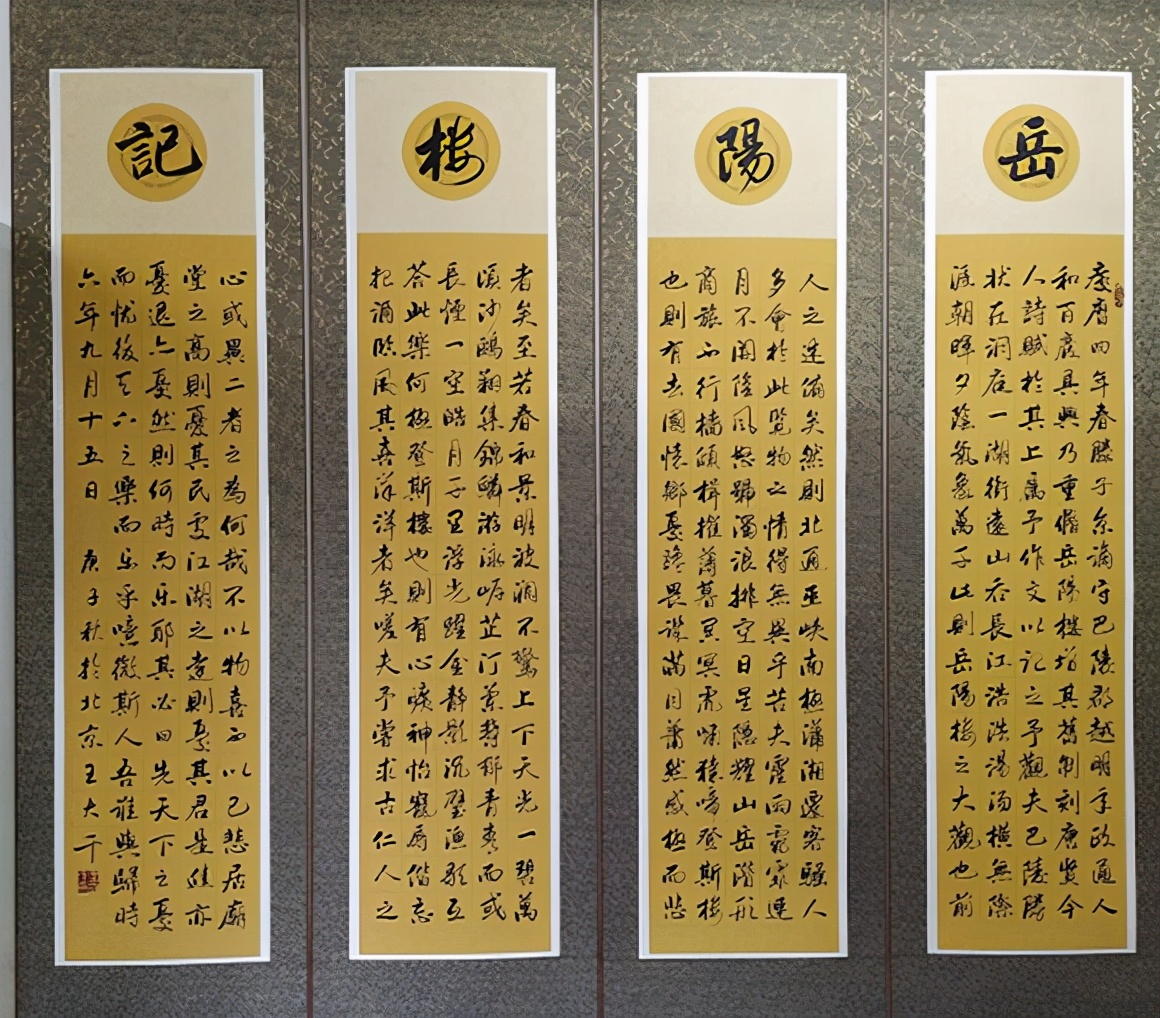 岳
慶曆四年春滕子京謫守巴陵郡越明年政通人
和百廢具興乃重脩岳陽樓增其舊制刻唐賢今
人詩賦於其上屬予作文以記之予觀夫巴陵勝
狀在洞庭一湖銜遠山吞長江浩浩湯湯橫無際
涯朝暉夕陰氣象萬千此則岳陽樓之大觀也前
陽
人之述備矣然則北通巫峽南極瀟湘遷客騷人
多會於此覽物之情得無異乎若夫霪雨霏霏連
月不開陰風怒號濁浪排空日星隱耀山岳潛形
商旅不行檣傾楫摧薄暮冥冥虎嘯猿啼登斯樓
也則有去國懷鄉憂讒畏譏滿目蕭然感極而悲
樓
者矣至若春和景明波瀾不驚上下天光一碧萬
頃沙鷗翔集錦鱗游泳岸芷汀蘭鬱郁青青而或
長煙一空皓月千里浮光躍金靜影沉璧漁歌互
答此樂何極登斯樓也則有心曠神怡寵辱偕忘
把酒臨風其喜洋洋者矣嗟夫予嘗求古仁人之
記
心或異二者之為何哉不以物喜不以己悲居廟
堂之高則憂其民處江湖之遠則憂其君是進亦
憂退亦憂然則何時而乐耶其必曰先天下之憂
而忧後天下之樂而乐乎噫微斯人吾誰與歸時
六年九月十五日 庚子秋於北京王大千